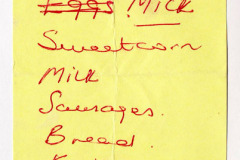 Eggs MILK
Sweetcorn
MILK
Sausages.
Bread